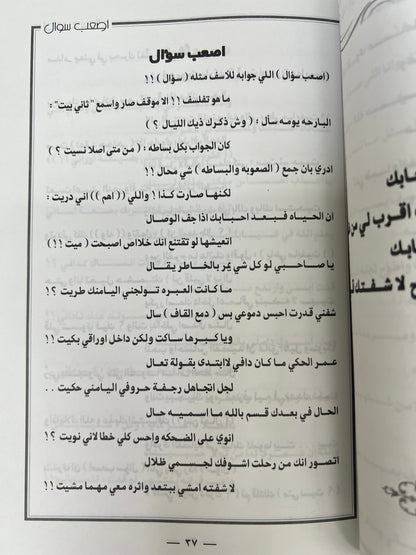 اصعب سؤال
اصعب سؤال
(اصعب سؤال) اللي جوابه للأسف مثله (سؤال) !!
ما هو تفلسف !! الا موقف صار واسمع "ثاني بيت":
البارحه يومه سأل : (وش ذكرك ذيك الليال ؟)
كان الجواب بكل بساطه : (من متى اصلا نسيت ؟)
ادري بان جمع (الصعوبه والبساطه) شي محال !!
لكنها صارت كذا ! واللي ((اهم)) اني دريت :
ان الحياه فبعد احبابك اذا جف الوصال
اتعيشها لو تقتنع انك خلاص اصبحت (ميت !!)
يا صاحبي لو كل شي يمر بالخاطر يقال
ما كانت العبره تولجني اليامنك طريت ؟!
شفني قدرت احبس دموعي بس (دمع القاف) سال
ويا كبرها ساكت ولكن داخل اوراقي بكيت !!
عمر الحكي ما كان دافي لاابتدى بقولة تعال
لجل اتجاهل رجفة حروفي اليامني حكيت ..
الحال في بعدك قسم بالله ما اسميه حال
انوي على الضحكه واحس كلي خطا لاني نويت ؟!
اتصور انك من رحلت اشوفك لجسمي ظلال
لا شفته امشي يبتعد واثره معي مهما مشيت !!
— ٣٧ —
ابك
اقرب لي من
ابك
ح لا شفتك